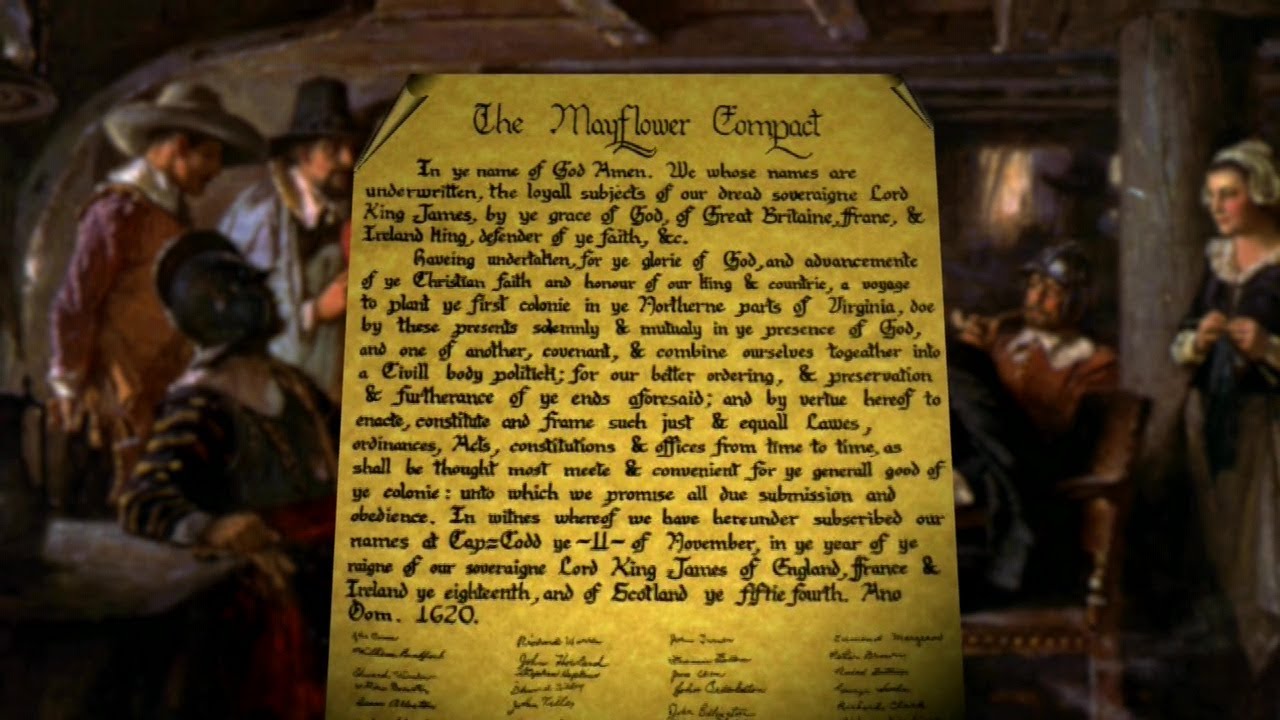 The Mayflower Compact
In ye name of God Amen. We whose names are
underwritten, the loyall subjects of our dread soveraigne Lord
King James, by ye grace of God, of Great Britaine, ffranc, &
Ireland king, defender of ye faith, &c.
Haveing undertaken, for ye glorie of God, and advancemente
of ye Christian faith and honour of our king & countrie, a voyage
to plant ye first colonie in ye Northerne parts of Virginia, doe
by these presents solemnly & mutualy in ye presence of God,
and one of another, covenant, & combine ourselves togeather into
a Civill body politick; for our better ordering, & preservation
& furtherance of ye ends aforesaid; and by vertue hereof to
enacte, constitute and frame such just & equall Lawes,
ordinances, Acts, constitutions & offices from time to time, as
shall be thought most meete & convenient for ye generall good of
ye colonie: unto which we promise all due submission and
obedience. In witnes whereof we have hereunder subscribed our
names at Cap=Codd ye ~11~ of November, in ye year of ye
raigne of our soveraigne Lord King James of England, ffrance &
Ireland ye eighteenth, and of Scotland ye fiftie fourth. Ano
Dom. 1620.
Richard Warren John Turner
William Bradford John Howland Peter Brown
Edward Tilley
John Tilley John Billington Richard Clark